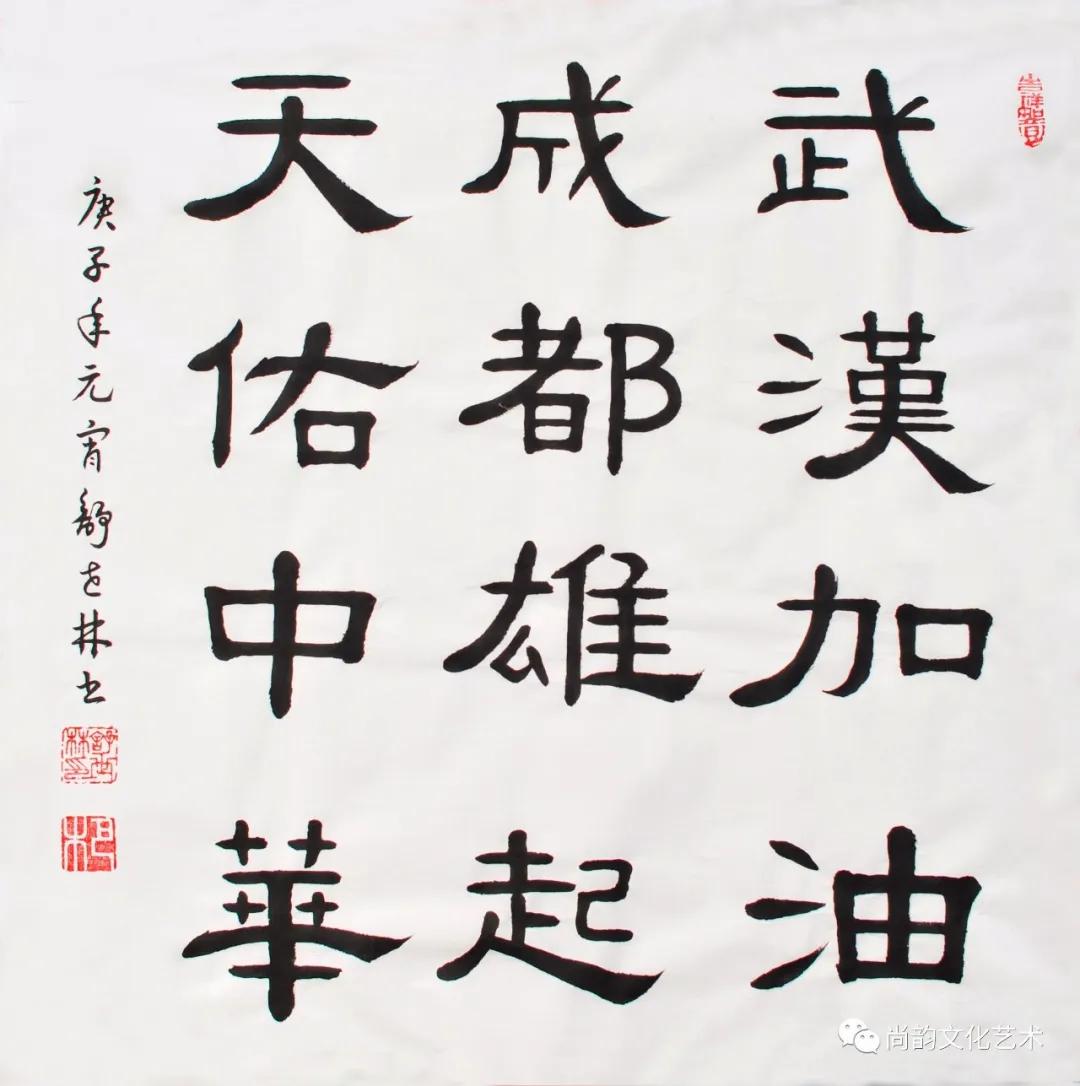 武漢加油
成都雄起
天佑中華
庚子年元宵舒世林书
尚韵文化艺术